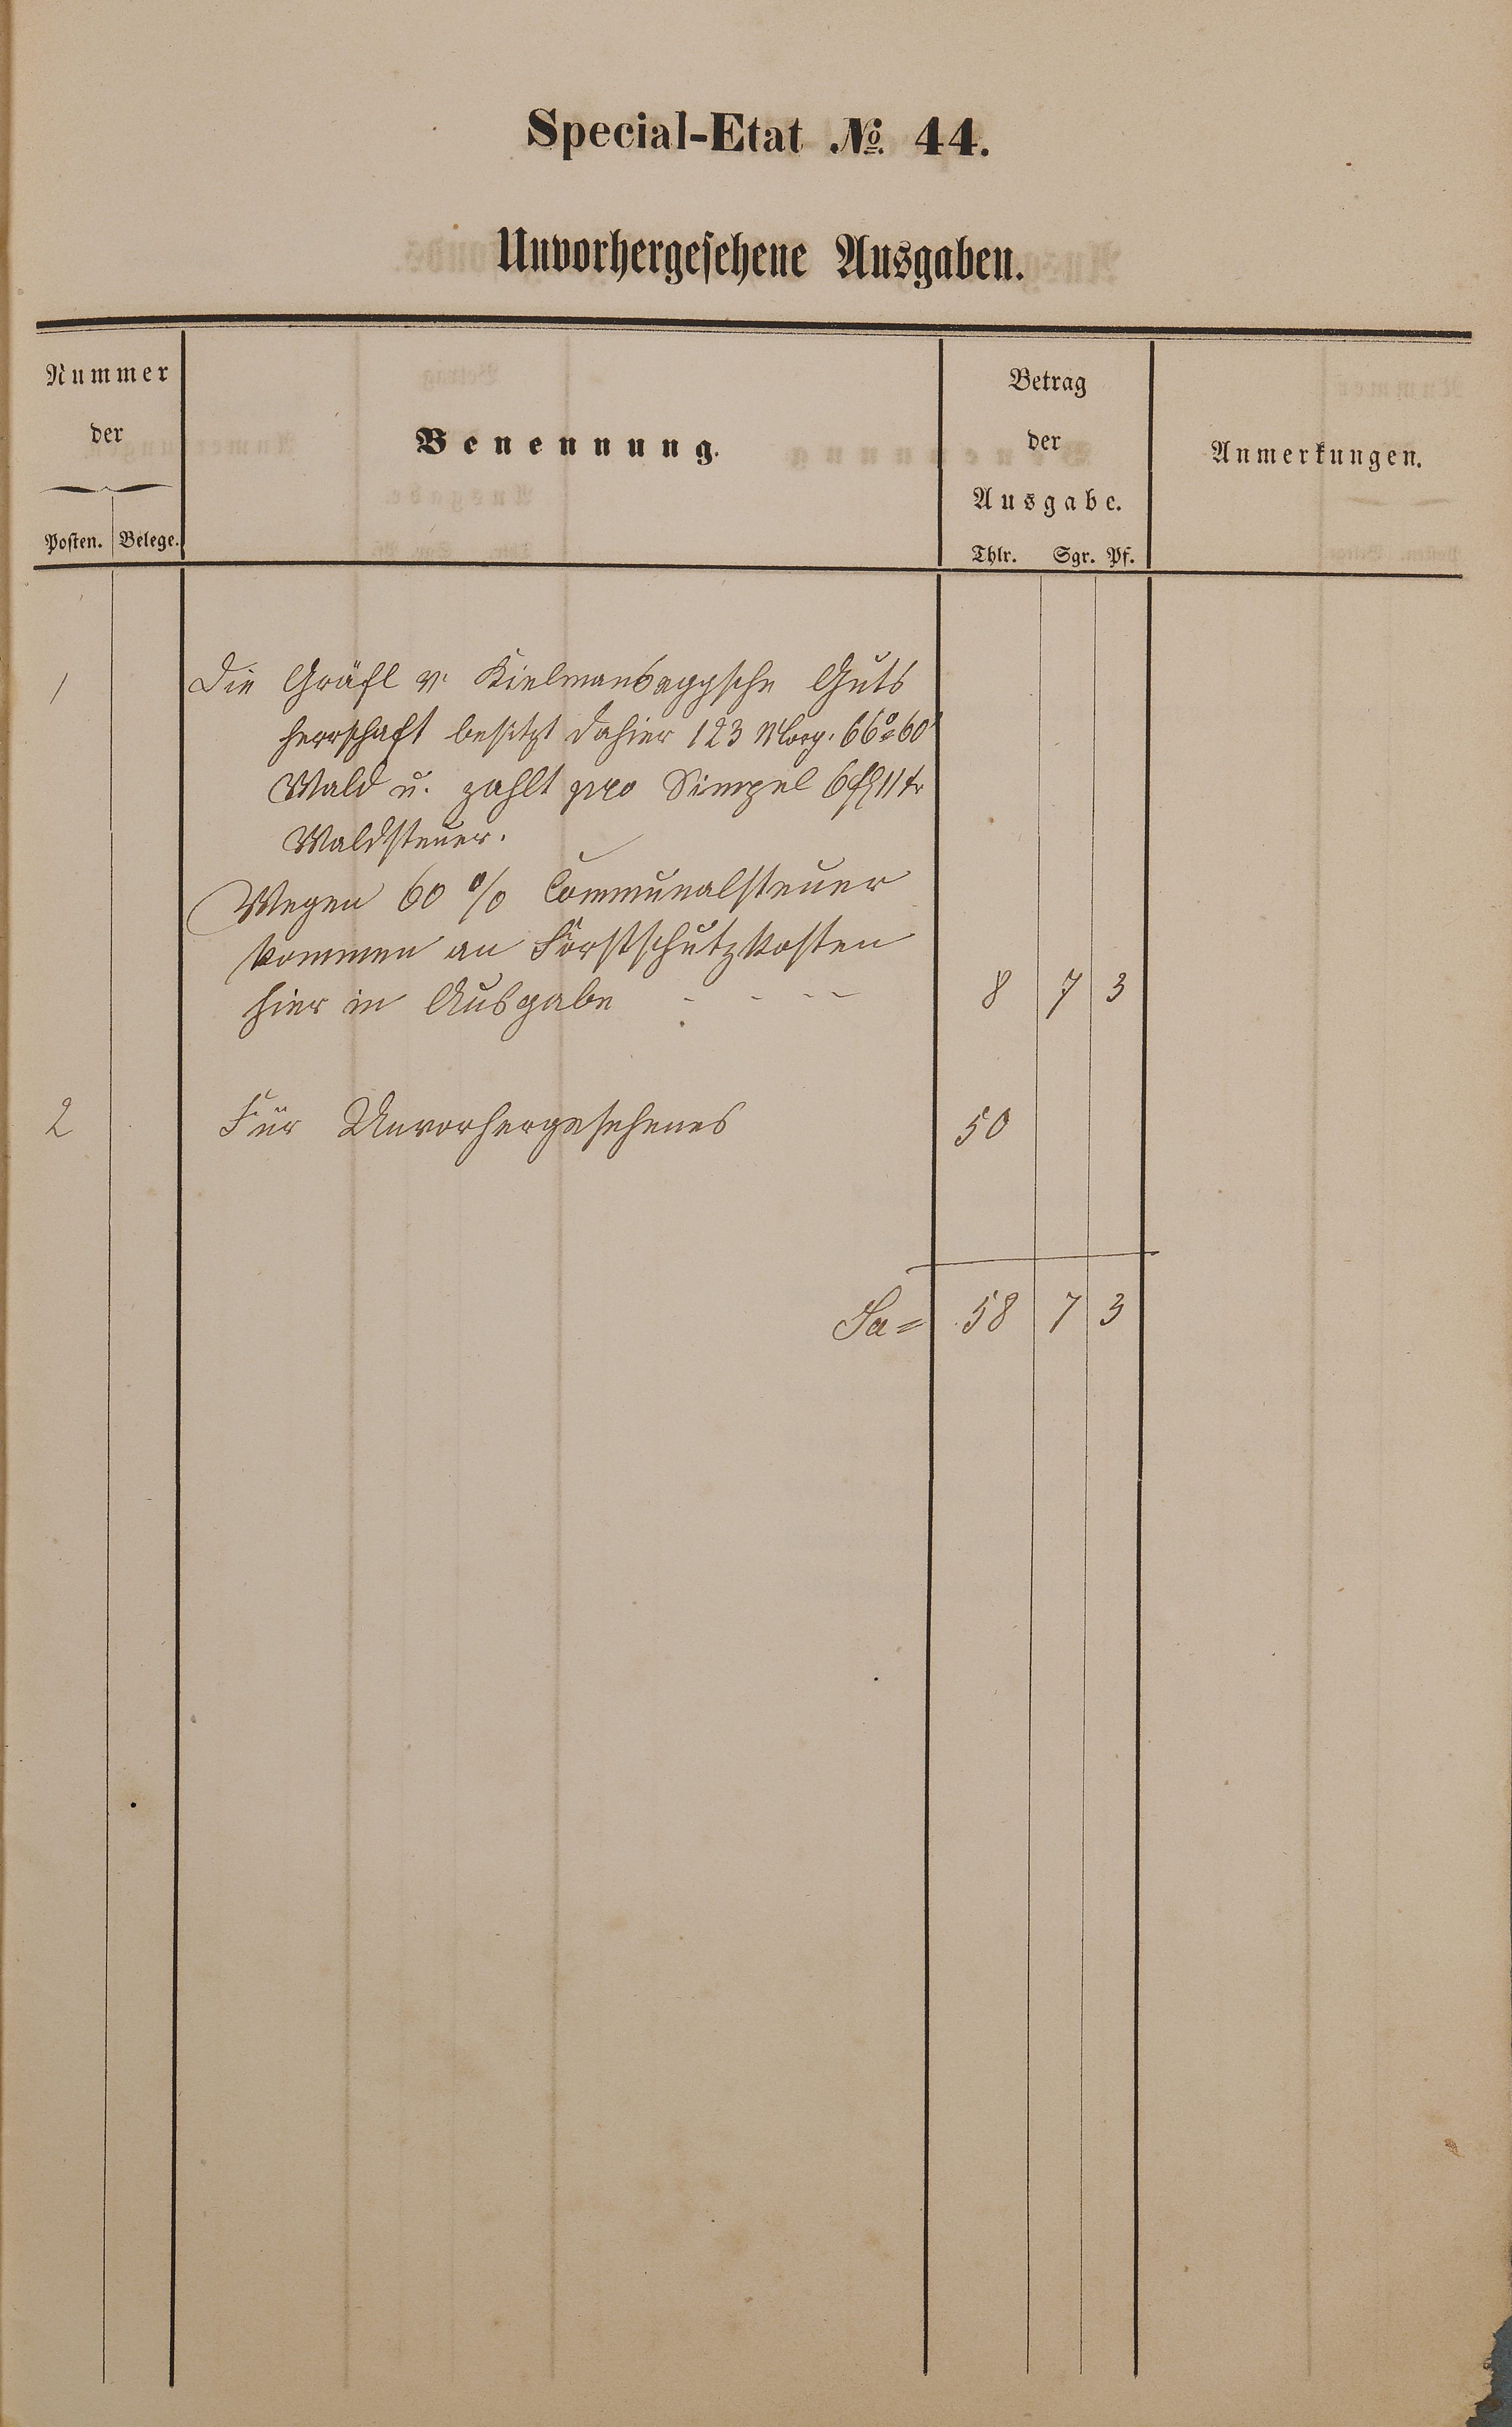 Special-Etat № 44.
Unvorhergesehene Ausgaben.
Nummer
der
Posten. Belege.
Benennung.
Betrag
der
Ausgabe.
Thlr. Sgr. Pf.
Anmerkungen.
1 Die Gräfl v. Kielmansеggsche Guts
herrschaft besitzt dahier 123 Morg. 66° 60'
Wald u. zahlt pro Simpel 6 fl 11 kr
Waldsteuer.
Wegen 60 % Communalsteuer
kommen an Forstschutzkosten
hier in Ausgabe - - - - 8 7 3
2 Für Unvorhergesehenes 50
Sa = 58 7 3